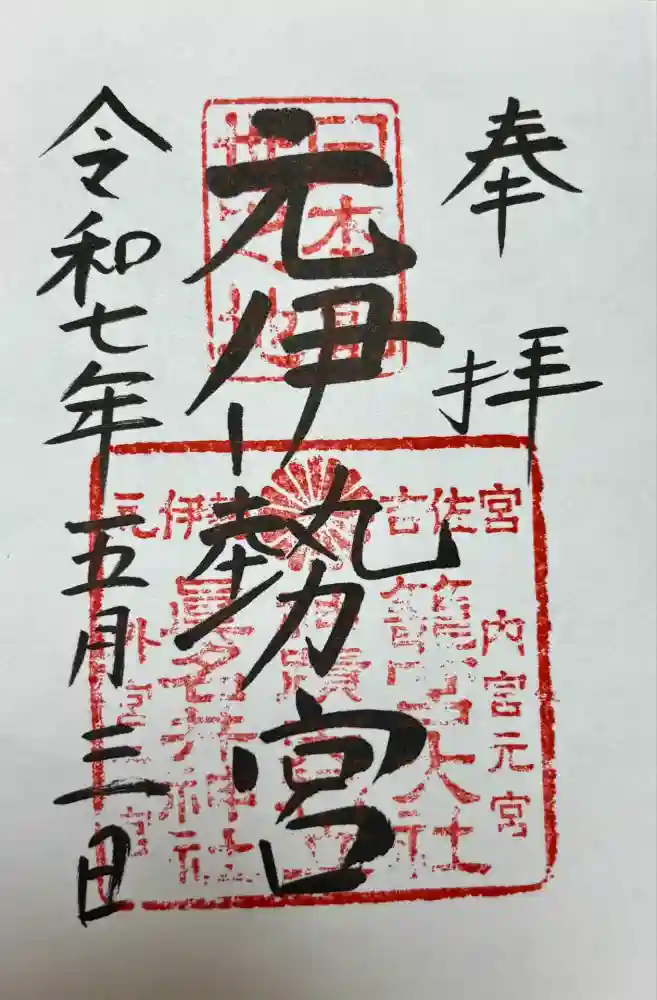 奉拝
元伊勢宮
令和七年五月三日
宮佐古
伊勢元
内宮元宮
籠宮大社
眞名井神社
外宮元宮